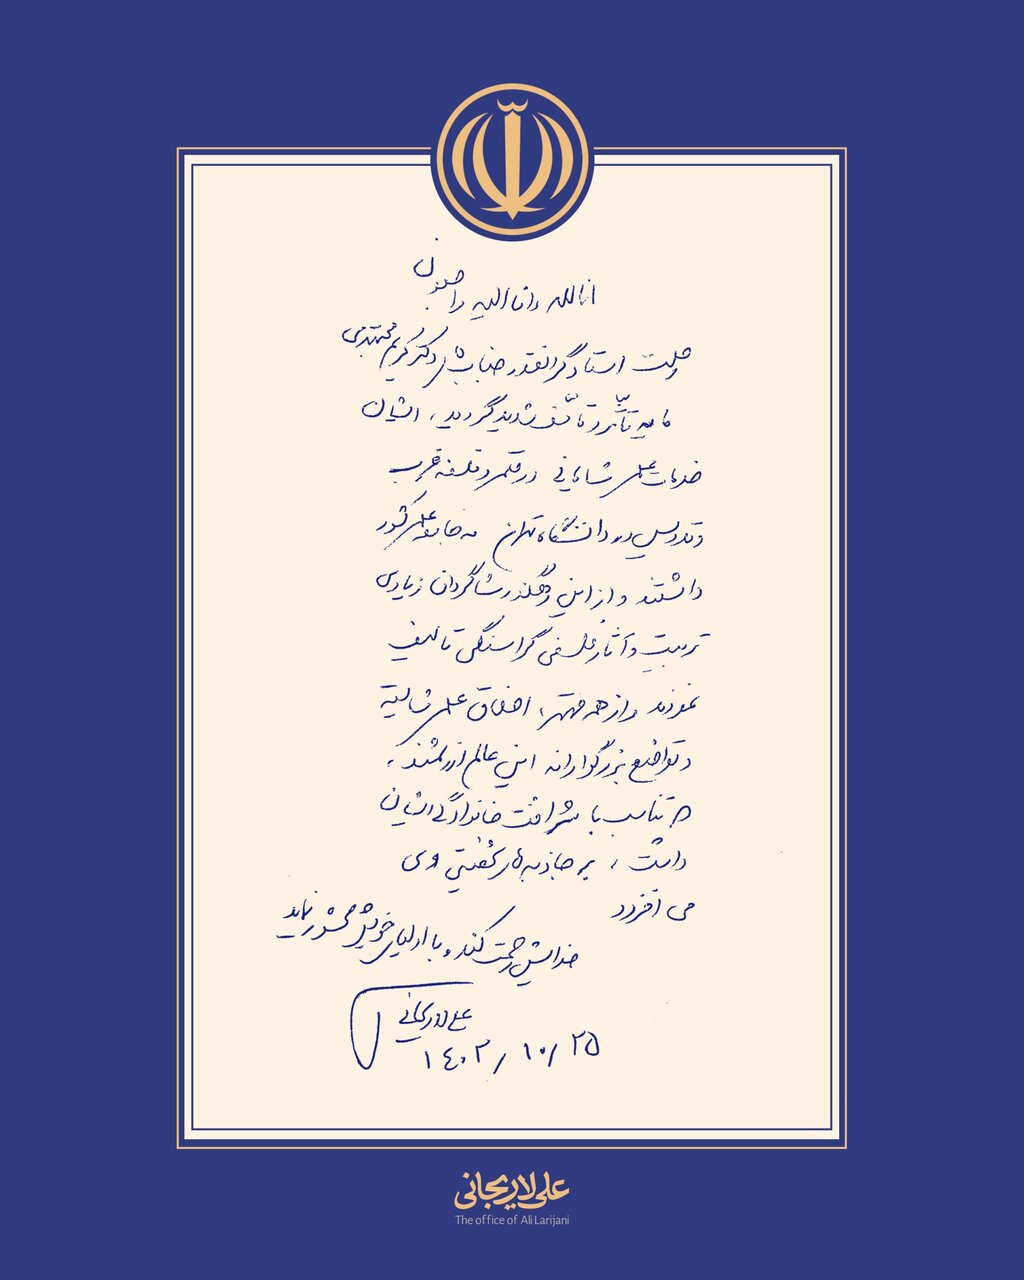 انا لله و انا الیه راجعون
رحلت استاد گرانقدر جناب آقای دکتر کریم مجتهدی
مایه تأثر و تأسف شدید گردید، ایشان
خدمات علمی شایانی در قلمرو فلسفه غرب
و تدریس در دانشگاه تهران به جامعه علمی کشور
داشتند و از این رهگذر شاگردان زیادی
تربیت و آثار فلسفی گرانسنگی تالیف
نمودند و از همه مهمتر، اخلاق علمی شایسته
و تواضع بزرگوارانه این عالم ارزشمند که
تناسب با شرافت خانوادگی ایشان
داشت، بر جاذبه‌های وی
می افزود
خدایش رحمت کند و با اولیای خویش محشور نماید
علی لاریجانی
۱۴۰۲/۱۰/۲۵
علی لاریجانی
The office of Ali Larijani